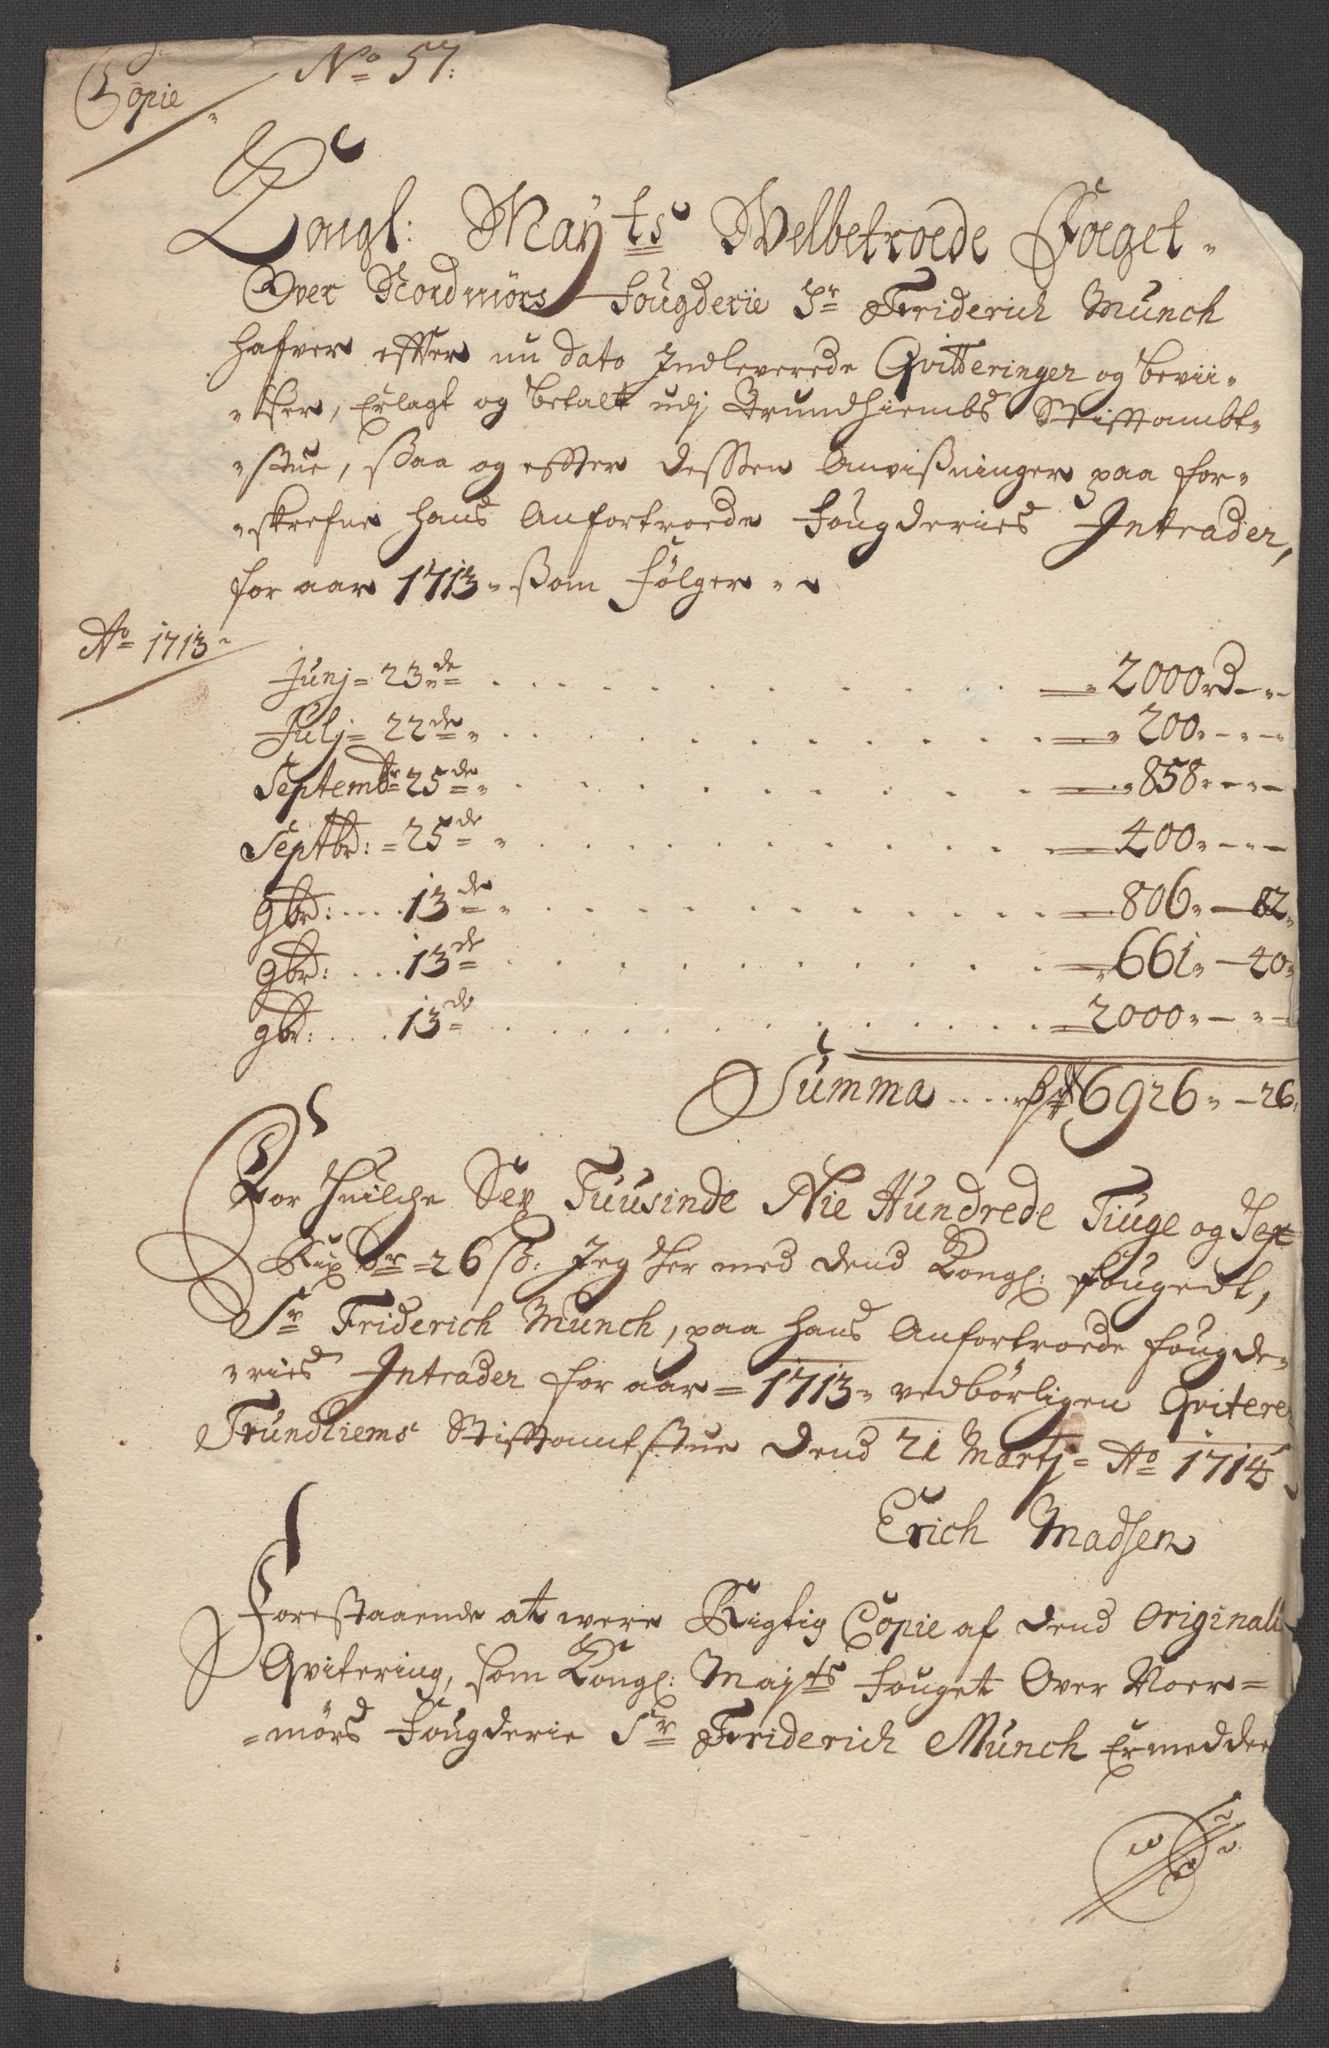 Copie
No 57:
Kongl: Mayts Welbetroede Foeget
Over Nordmørs Fougderie Sr Friderich Munch
Hafver efter nu dato Indleverede Qvitteringer og bevii-
-ser, Erlagt og betalt udj Trundhiembs Stiftambt-
-stue, saa og efter dessen Anvissninger paa for-
-skrefne hans Anfortroede Fougderies Intrader,
for aar 1713 som følger
Ao 1713
Junj 23de 2000 rd
Julj 22de 200
Septembr 25de 858
Septbr: 25de 400
9br: 13de 806 82
9br: 13de 661 40
9br: 13de 2000
Summa 6926 26
For Huilche Sex Tuusinde Nie Hundrede Tiuge og Sex
Rixdr 26 s: Jeg Her med dend Kongl: fougedt,
Sr Friderich Munch, paa hans Anfortroede fougde-
-ries Intrader for aar 1713 vedbørligen Qvitere
Trundhiems Stiftamtstue dend 21 Martj Ao 1714
Erich Madsen
Forestaaende at were Rigtig Copie af dend Originall
Qvitering, som Kongl: Majts fouget Over Noer-
-mørs Fougderie Sr Friderich Munch Er meddee